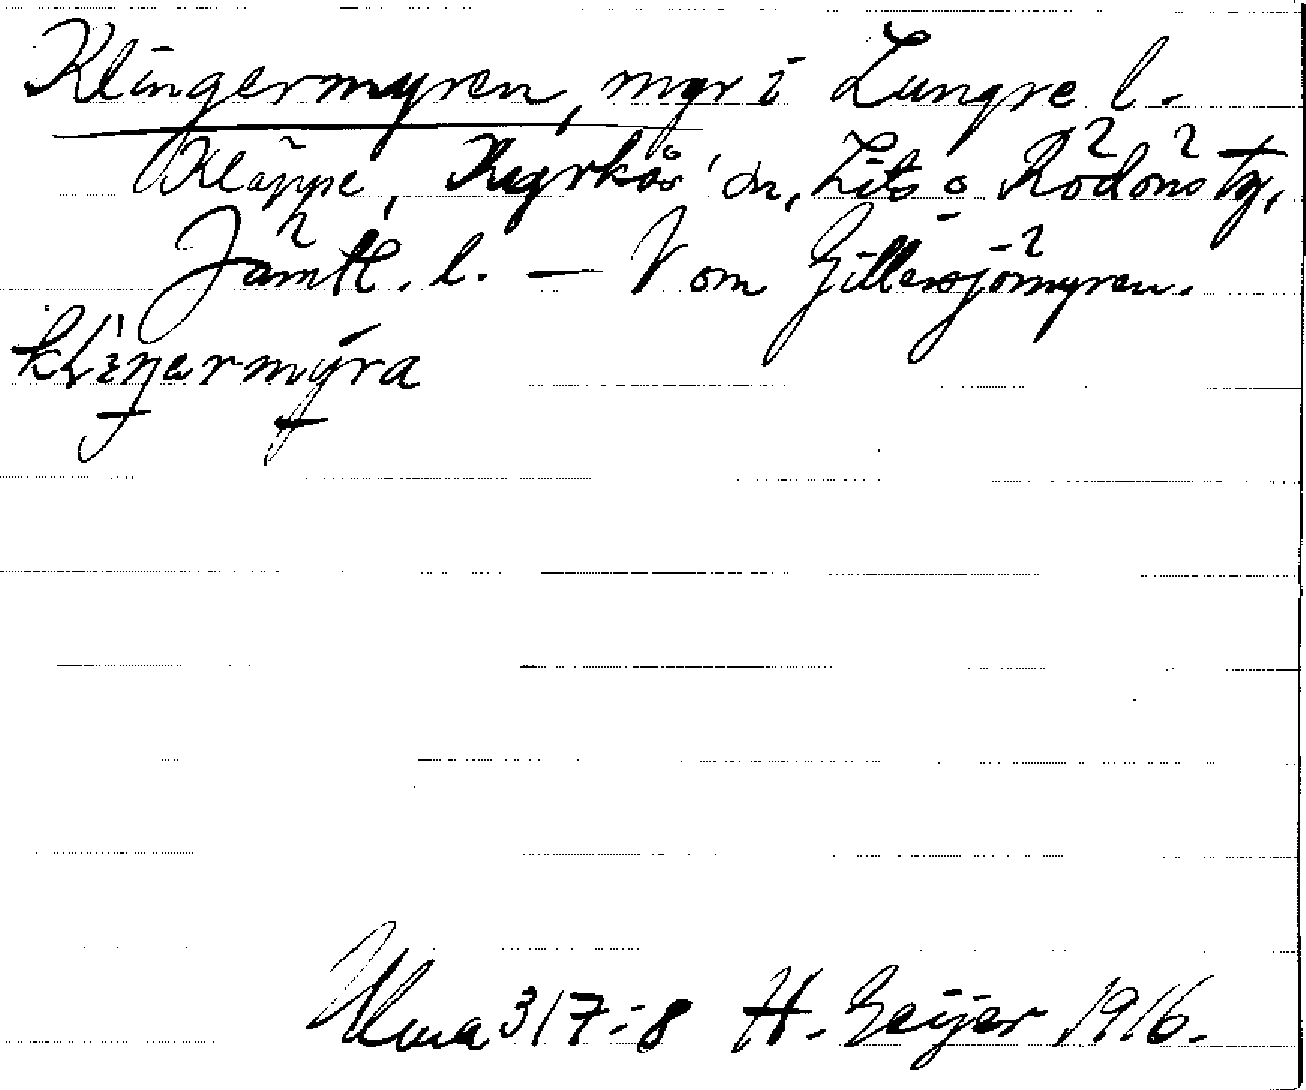 Klingermyren, myr i Lungre l.
Kläppe, Kyrkås sn, Lits o Rödöns tg,
Jämtl. l. — V om Gillersjömyren.
Ulma 317:8 H. Geijer 1916.